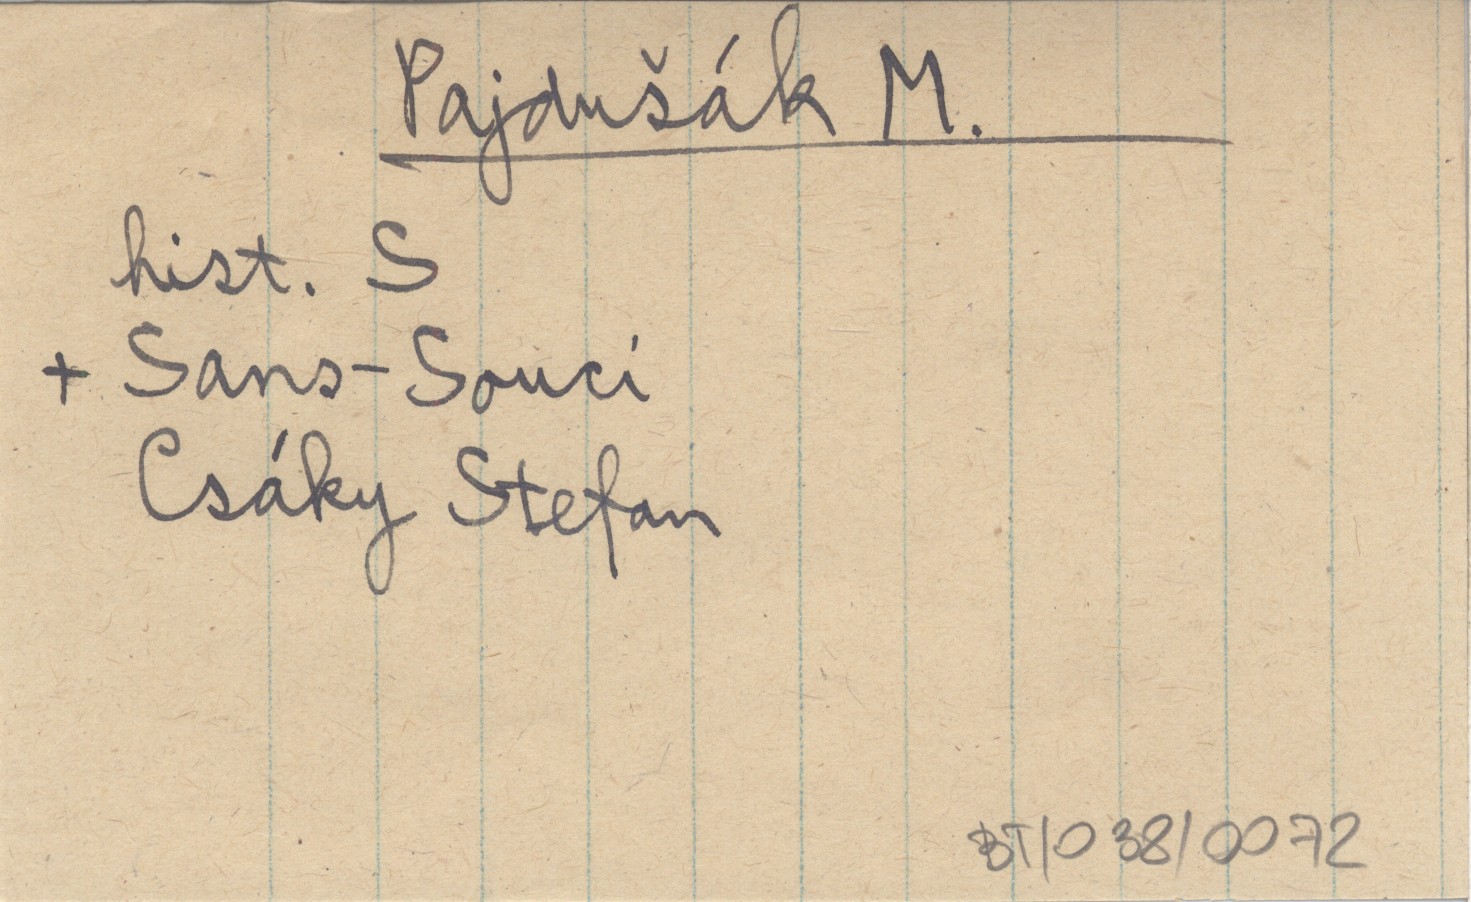 Pajdušák M.
hist. S
+ Sans-Souci
Csáky Stefan
BT/038/0072